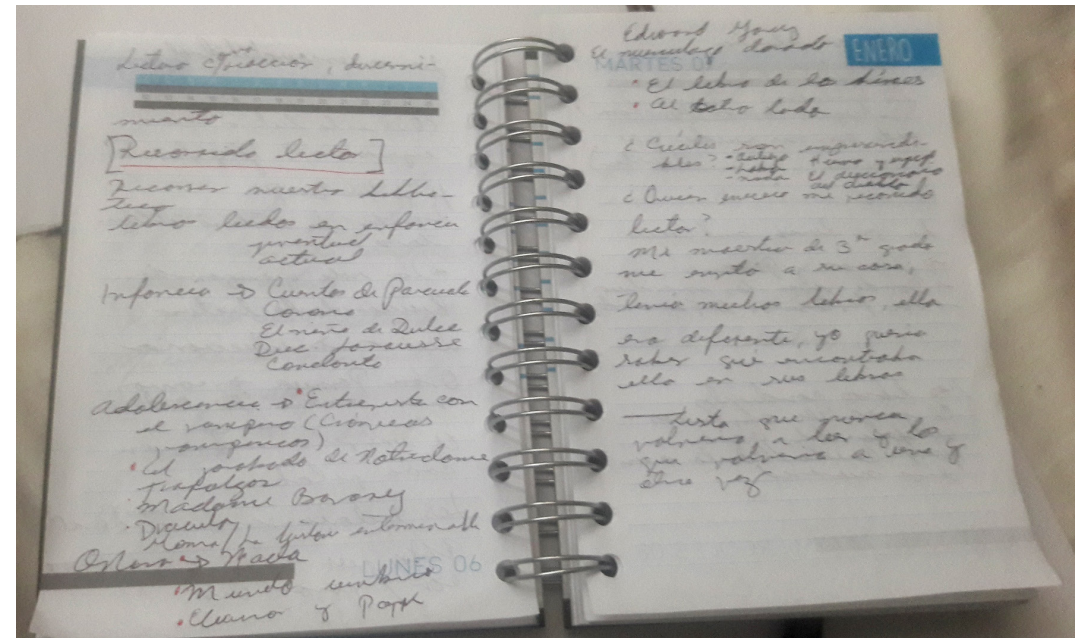 Lectura c/reacción, discerni-
miento
[Recorrido lector]
Recorrer nuestra biblio-
teca
libros leídos en infancia
juventud
actual
Infancia → Cuentos de Pascuala
Corona
El niño de Dulce
Conclonto
Adolescencia → Entrevista con
el vampiro (Crónicas
vampíricas)
• El jorobado de Notredame
• Madame Bovarey
• Drácula
Momo/La historia interminable
Ahora → Nada
• Mundo umbrío
• Eleanor y Park
LUNES 06
Edward Gorey
El murciélago dorado
ENERO
MARTES 07
• El libro de los
• Al otro lado
¿Cuáles son imprescindi-
bles?
El diccionario
del diablo
¿Quién inició mi recorrido
lector?
Mi maestra de 3er grado
me invitó a su casa,
tenía muchos libros, ella
era diferente, yo quería
saber qué encontraba
ella en sus libros
Lista que nunca
volvería a leer y los
que volvería a leer una y
otra vez